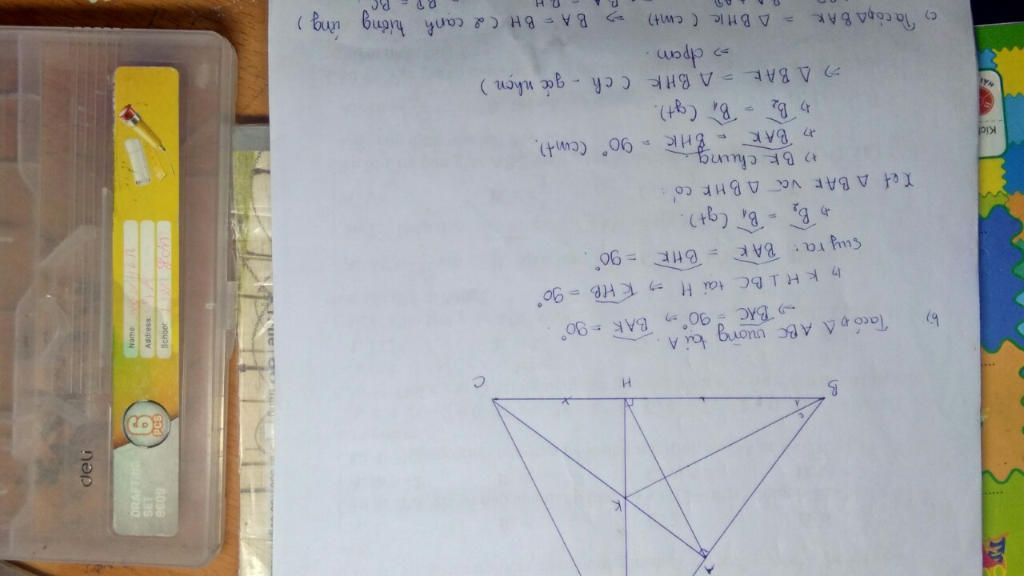 A
K
B
2
1
H
C
b) Ta có Δ ABC vuông tại A
⇒ BAC = 90° ⇒ BAK = 90°
KH ⊥ BC tại H ⇒ KHB = 90°
suy ra: BAK = BHK = 90°
B₂ = B₁ (gt).
Xét Δ BAK và Δ BHK có:
BK chung
BAK = BHK = 90° (cmt).
B₂ = B₁ (gt).
⇒ Δ BAK = Δ BHK (ch - góc nhọn)
⇒ đpcm.
c) Ta có Δ BAK = Δ BHK (cmt) ⇒ BA = BH (2 cạnh tương ứng)
deli
DRAFTING
SET
6 PCS
Name:
Address:
School: